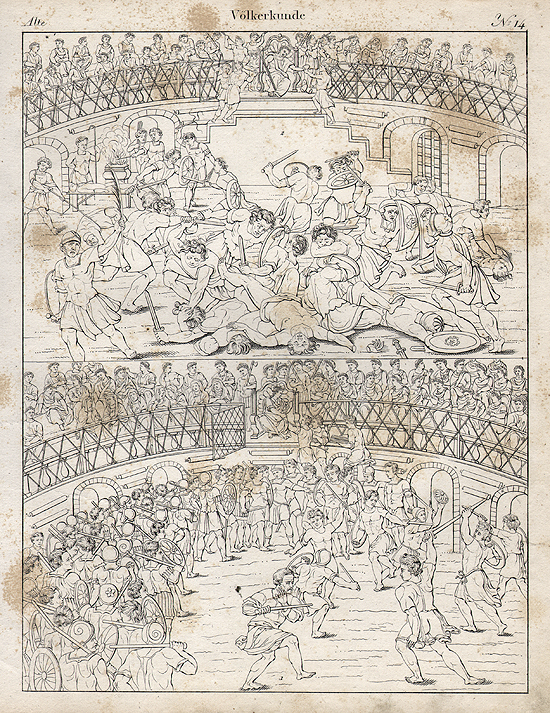 Alte
Völkerkunde
No. 14
2